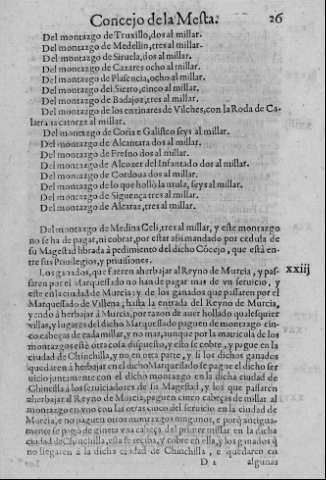 Concejo de la Mesta. 26
Del montazgo de Truxillo, dos al millar.
Del montazgo de Medellin, tres al millar.
Del montazgo de Siruela, dos al millar.
Del montazgo de Cazares ocho al millar.
Del montazgo de Plasencia, ocho al millar.
Del montazgo del Sierro, cinco al millar.
Del montazgo de Badajoz, tres al millar.
Del montazgo de los entinares de Vilches, con la Roda de Ca-
catorze al millar.
Del montazgo de Coria e Galisteo seys al millar.
Del montazgo de Alcantara dos al millar.
Del montazgo de Fresno dos al millar.
Del montazgo de Alcozer del Infantado dos al millar.
Del montazgo de Cordoua dos al millar.
Del montazgo de lo que holló la seys al millar.
Del montazgo de Siguença tres al millar.
Del montazgo de Alcaraz, tres al millar.
Del montazgo de Medina Celi, tres al millar, y este montazgo
no se ha de pagar, ni cobrar, por estar assi mandado por cedula de
su Magestad librada à pedimento del dicho Cōcejo, que està en-
tre sus Priuilegios, y prouisiones.
Los ganados, que fueren aherbajar al Reyno de Murcia, y pas-
xxiij
saren por el Marquessado no han de pagar mas de vn seruicio, y
este en la ciudad de Murcia: y de los ganados que passaren por el
Marquessado de Villena, hasta la entrada del Reyno de Murcia,
y endo à herbajar à Murcia, por razon de auer hollado qualesquier
villas, y lugares del dicho Marquessado paguen de montazgo cin-
co cabeças de cada millar, y no mas, aunque por la matricula de los
montazgos esté otra cosa dispuesto, y esto se cobre, y pague en la
ciudad de Chinchilla, y no en otra parte, y si los dichos ganados
quedaren à herbajar en el dicho Marquessado se pague el dicho ser
uicio juntamente con el dicho montazgo en la dicha ciudad de
Chinchilla à los seruiciadores de su Magestad, y los que passaren
aherbajar al Reyno de Murcia, paguen cinco cabeças de millar al
montazgo en vno con las otras cinco del seruicio en la ciudad de
Murcia, e no paguen otros montazgos ningunos, e porq̃ antigua-
mente se pagò de gineta vna cabeça del primer millar en la dicha
ciudad de Chinchilla, esta se reciba, y cobre en ella, y los ganados q̃
no llegaren à la dicha ciudad de Chinchilla, e quedaren en
D 2 algunas